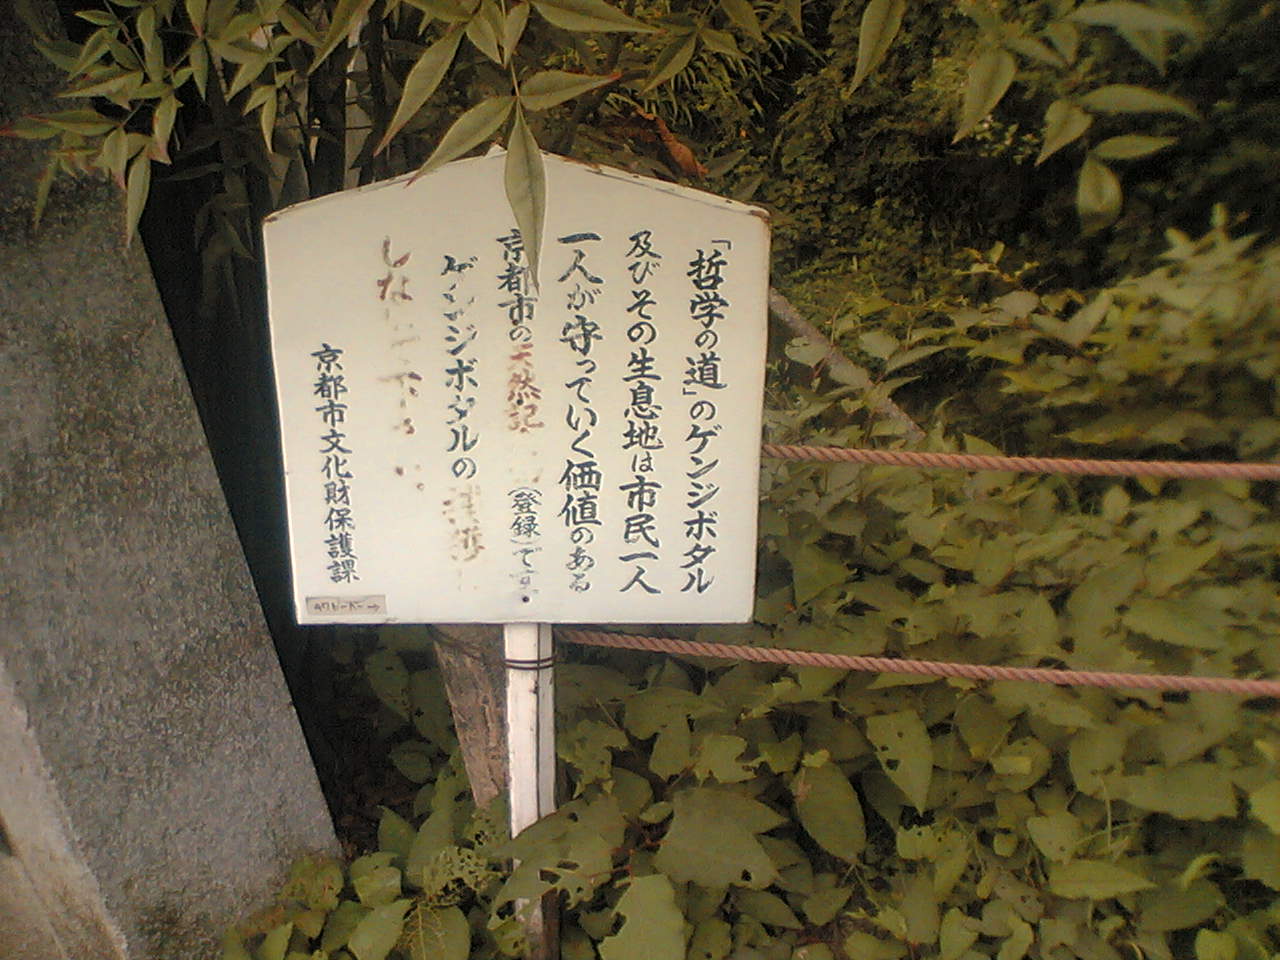 「哲学の道」のゲンジボタル
及びその生息地は市民一人
一人が守っていく価値のある
京都市の天然記 (登録)です。
ゲンジボタルの
しな
京都市文化財保護課